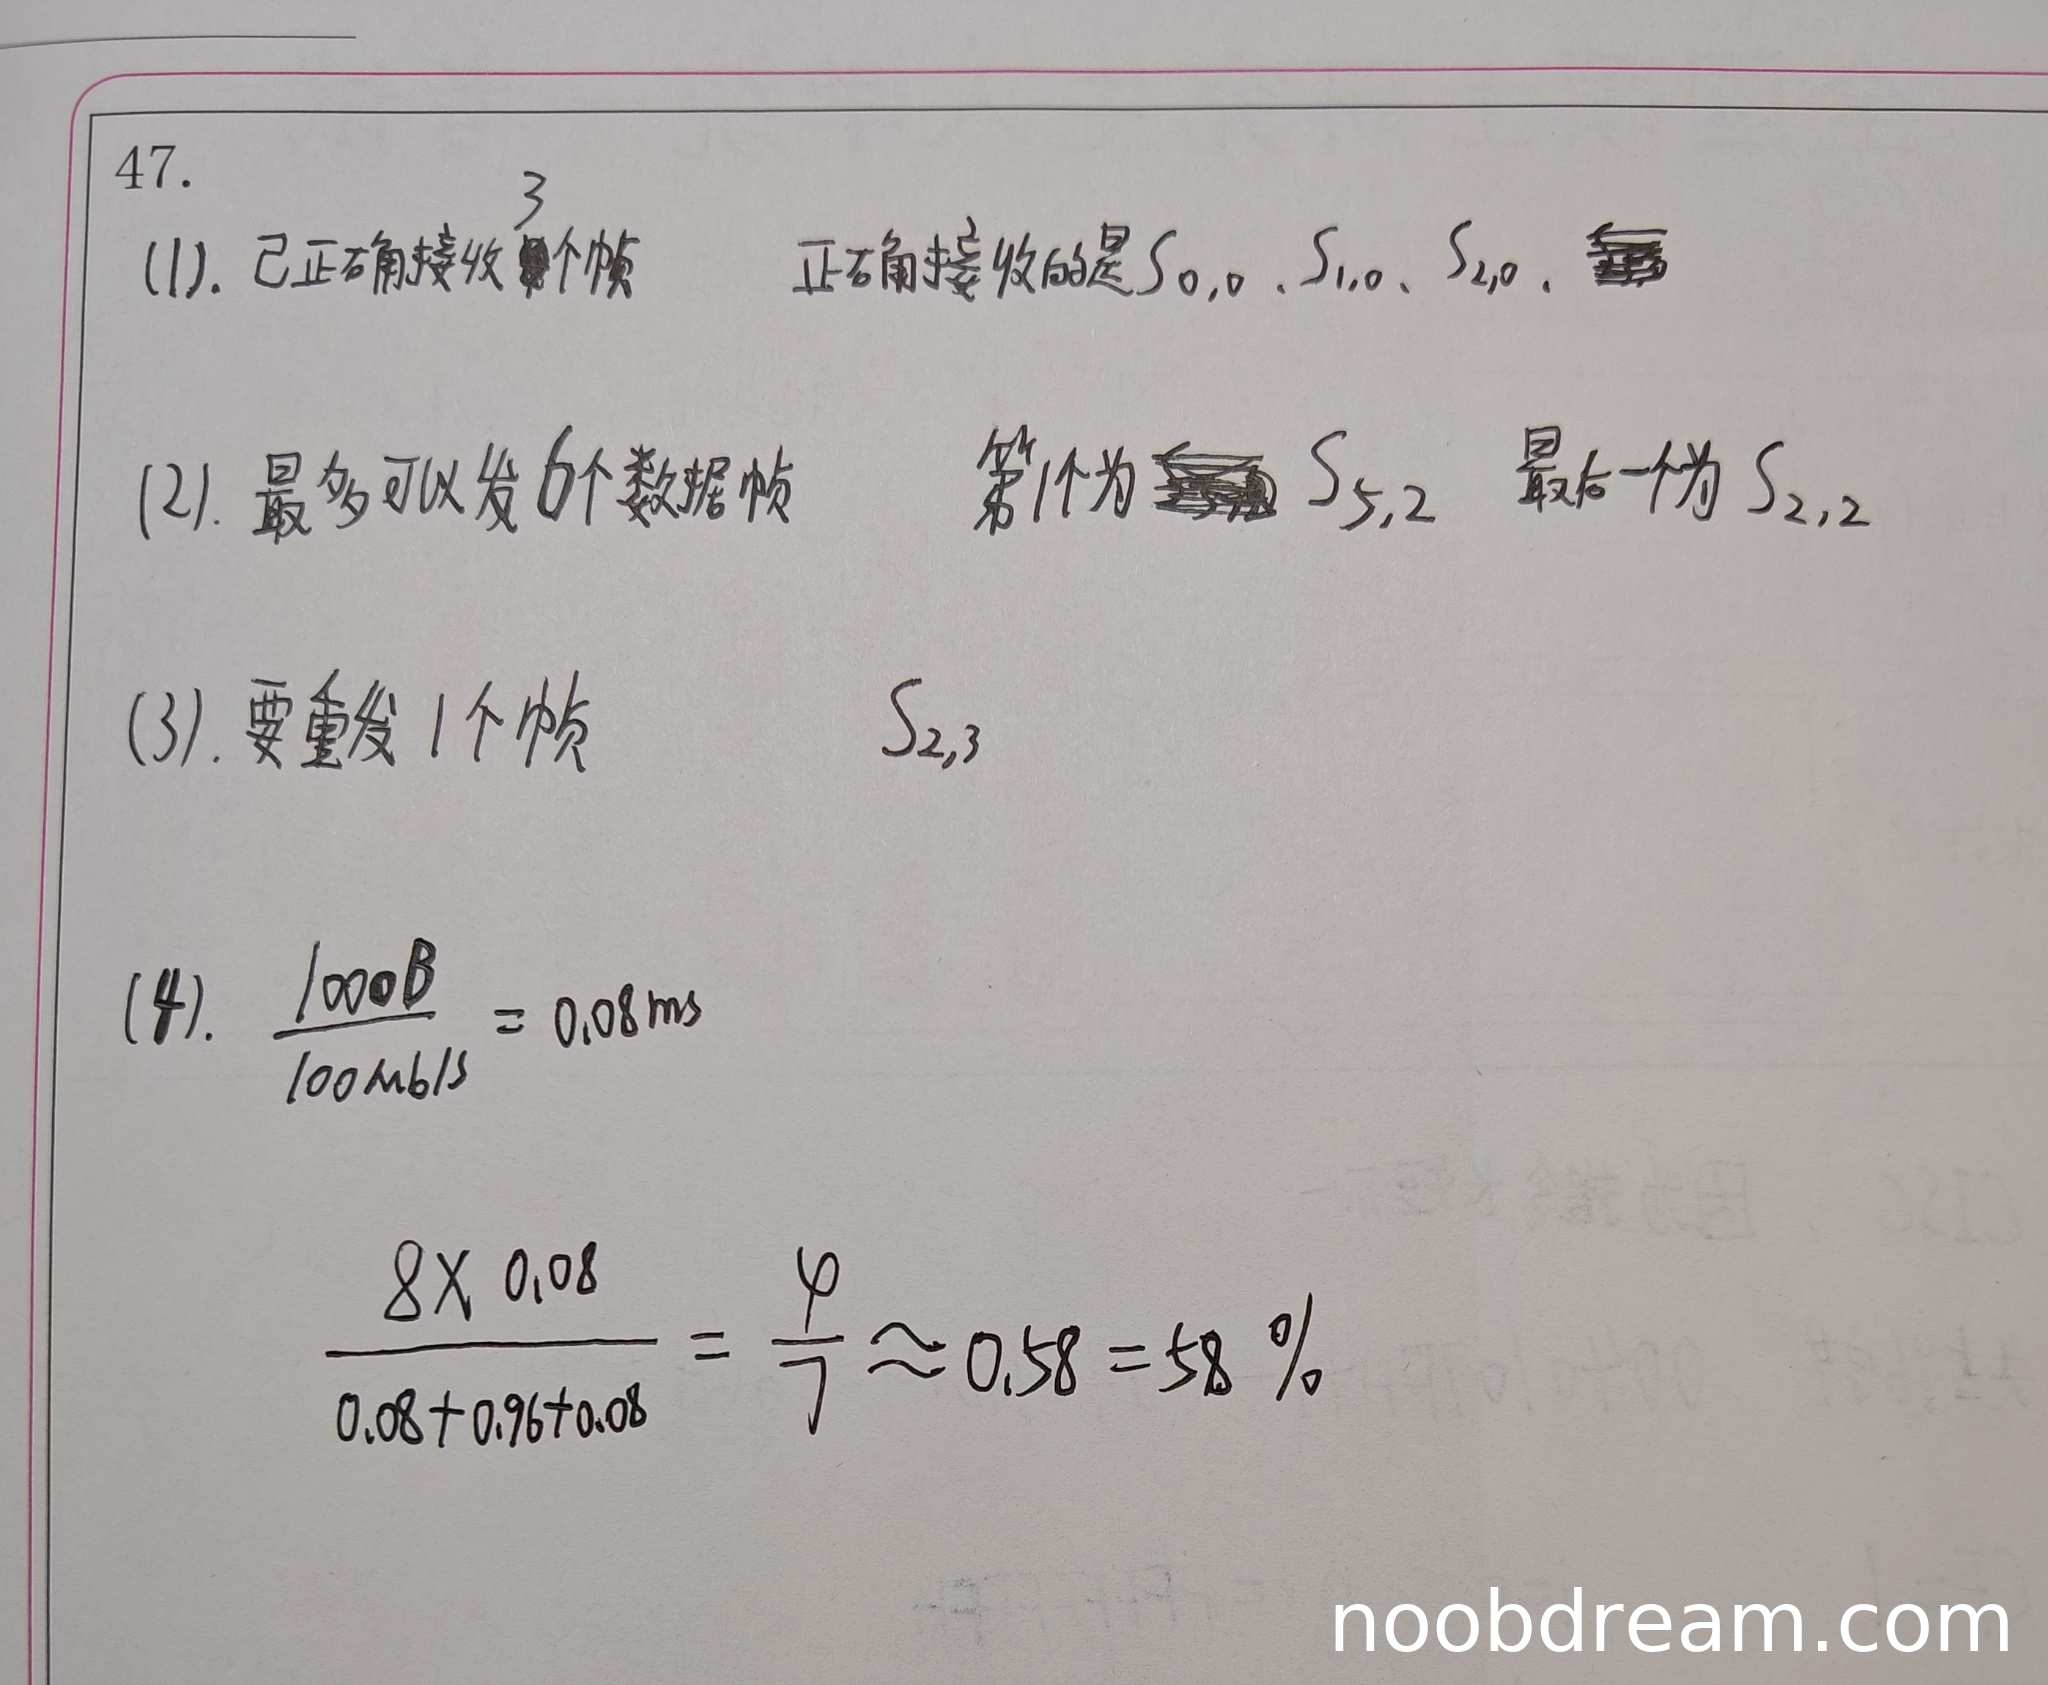 47.
(1). 已正确接收3个帧 正确接收的是S0,0、S1,0、S2,0、
(2). 最多可以发6个数据帧 第1个为 S5,2 最后一个为 S2,2
(3). 要重发1个帧 S2,3
(4). 1000B / 100Mb/s = 0.08ms
8X 0.08 / 0.08+0.96+0.08 = 4/7 ≈ 0.58 = 58%
noobdream.com